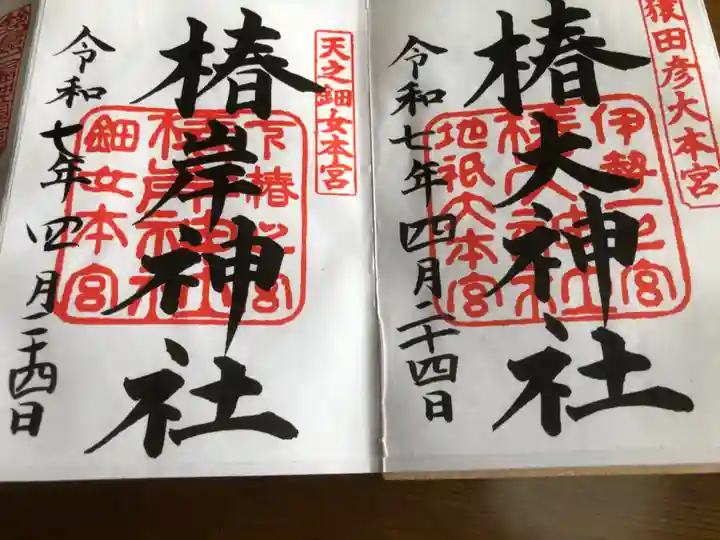 猿田彦大本宮
椿大神社
伊勢一之宮
椿大神社
地祇大本宮
令和七年四月二十四日
天之鈿女本宮
椿岸神社
下椿之宮
椿岸神社
鈿女本宮
令和七年四月二十四日